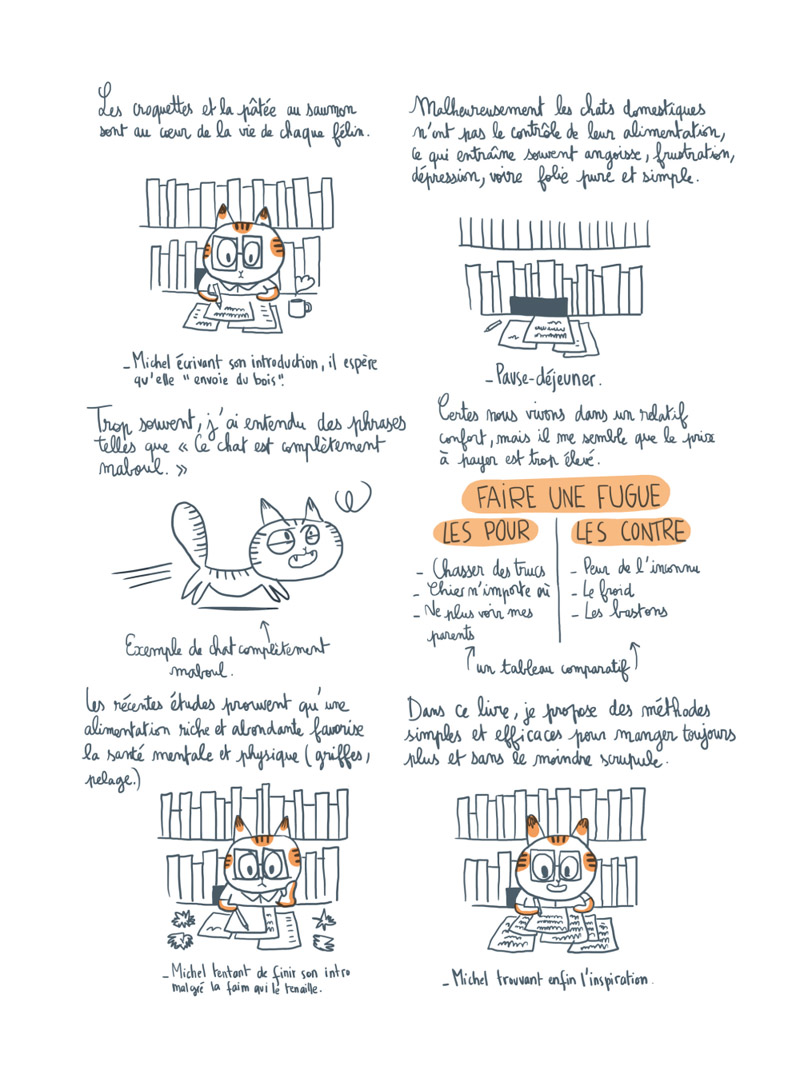 Les croquettes et la pâtée au saumon
sont au cœur de la vie de chaque félin.
_Michel écrivant son introduction, il espère
qu'elle "envoie du bois".
Malheureusement les chats domestiques
n'ont pas le contrôle de leur alimentation,
ce qui entraîne souvent angoisse, frustration,
dépression, voire folie pure et simple.
_Pause-déjeuner.
Trop souvent, j'ai entendu des phrases
telles que « Ce chat est complètement
maboul. »
Exemple de chat complètement
maboul.
Certes nous vivons dans un relatif
confort, mais il me semble que le prix
à payer est trop élevé.
FAIRE UNE FUGUE
LES POUR
- Chasser des trucs
- Chier n'importe où
- Ne plus voir mes
parents
LES CONTRE
- Peur de l'inconnu
- Le froid
- Les bastons
un tableau comparatif
Les récentes études prouvent qu'une
alimentation riche et abondante favorise
la santé mentale et physique (griffes,
pelage.)
_Michel tentant de finir son intro
malgré la faim qui le tenaille.
Dans ce livre, je propose des méthodes
simples et efficaces pour manger toujours
plus et sans le moindre scrupule.
_Michel trouvant enfin l'inspiration.